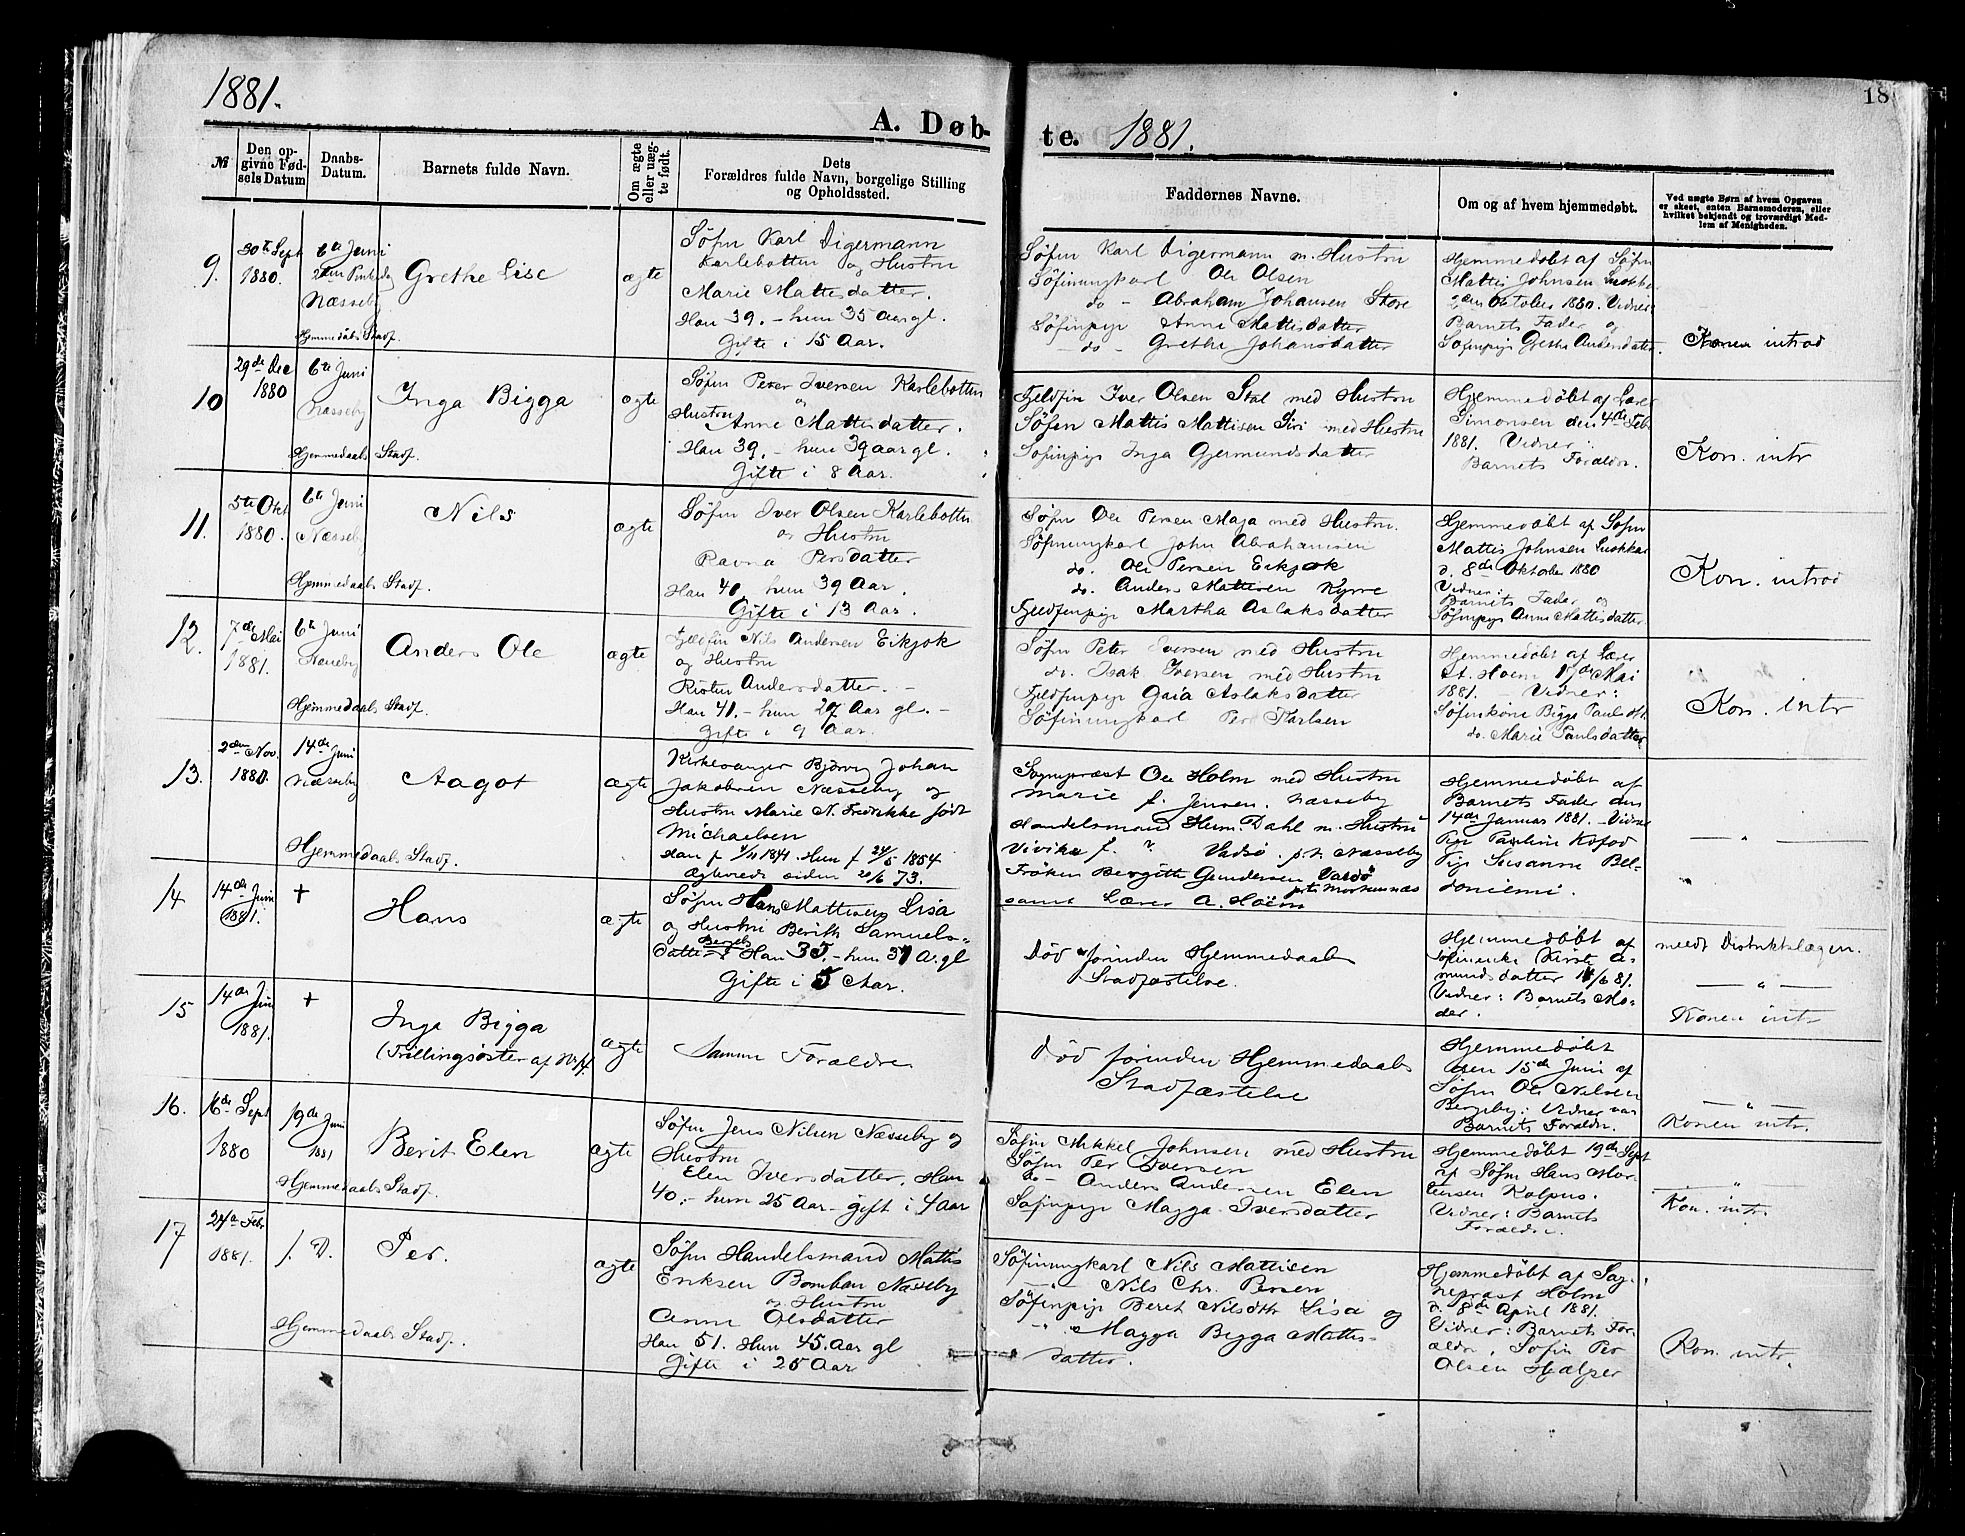 1881.
A. Døb-
te. 1881.
18
№
Den op-
givne Fød-
sels Datum
Daabs-
Datum.
Barnets fulde Navn.
Om ægte
eller uæg-
te født.
Dets
Forældres fulde Navn, borgelige Stilling
og Opholdssted.
Faddernes Navne.
Om og af hvem hjemmedøbt.
Ved uægte Børn af hvem Opgaven
er skeet, enten Barnemoderen, eller
hvilket bekjendt og troværdigt Med-
lem af Menigheden.
9.
30te Sept
1880.
6te Juni
2den Pinksdag
Næsseby
Hjemmedaabs Stadf.
Grethe Lise
ægte
Søfin Karl Digermann
Karlebotten og Hustru
Marie Mattisdatter.
Han 39. – hun 35 Aar gl.
Gifte i 15 Aar.
Søfin Karl Digermann m. Hustru
Søfinungkarl Ole Olsen
do - Abraham Johansen Store
Søfinpige Anne Mattisdatter
- do - Grethe Johansdatter
Hjemmedøbt af Søfin
Mattis Johnsen
2den Oktober 1880. Vidner
Barnets Fader og
Søfinpige Grethe Andersdatter.
Konen introd
10
29de Dec
1880
6te Juni
Næsseby
Hjemmedaabs Stadf.
Inga Bigga
ægte
Søfin Peter Iversen Karlebotten
og
Hustru Anne Mattisdatter.
Han 39. – hun 39 aar gl.
Gifte i 8 Aar.
Fjeldfin Iver Olsen Stal med Hustru
Søfin Mattis Mattisen Siri med Hustru
Søfinpige Inga Gjermundsdatter
Hjemmedøbt af Lærer
Simonsen den 4de Feb
1881. Vidner:
Barnets Forældre.
Kon. intr
11.
5te Okt
1880.
6te Juni
Næsseby
Hjemmedaabs Stadf.
Nils
ægte
Søfin Iver Olsen Karlebotten
og Hustru
Ravna Persdatter
Han 40, hun 39 Aar.
Gifte i 13 Aar.
Søfin Ole Persen Maja med Hustru.
Søfinungkarl John Abrahamsen
do. Ole Persen Eikjok
do. Anders Mattisen Kyrre
Fjeldfinpige Martha Aslaksdatter
Hjemmedøbt af Søfin
Mattis Johnsen
d. 8de Oktober 1880
Vidner:
Barnets Fader og
Søfinpige Anne Mattisdatter
Kon. introd
12.
7de Mai
1881.
6te Juni
Næsseby
Hjemmedaabs Stadf.
Anders Ole
ægte
Fjeldfin Nils Andersen Eikjok
og Hustru
Risten Andersdatter. –
Han 41. – hun 27 Aar gl. –
Gifte i 9 Aar.
Søfin Peter Iversen med Hustru
do. Isak Iversen med Hustru
Fjeldfinpige Gaia Aslaksdatter
Søfinungkarl Per Karlsen
Hjemmedøbt af Lærer
A. Hoem 17de Mai
1881. – Vidner:
Søfinkone Bigga Paulsdt.
do. Marie Paulsdatter
Kon. intr
13.
2den Nov.
1880.
14de Juni
Næsseby
Hjemmedaabs Stadf.
Aagot
ægte
Kirkesanger Bjørvig Johan
Jakobsen Næsseby og
Hustru Marie N. Fredrikke født
Michaelsen
Han f 4/11 1841. Hun f 24/5 1854
Ægteviede siden 20/6 73.
Sognepræst Ole Holm med Hustru
Marie f. Jensen. Næsseby
Handelsmand Herm. Dahl m. Hustru
Vivika f. ? Vadsø. p.t. Næsseby
Frøken Bergitte Gundersen Vardø
p.t. Mortensnæs
samt Lærer A. Hoem
Hjemmedøbt af
Barnets Fader den
14de Januar 1881. – Vidner
Pige Pauline Kofod
Pige Susanna Bel-
doniemi.
— „ —
14
14de Juni
1881.
+
Hans
ægte
Søfin Hans Mattisen Lisa
og Hustru Berith Samuels-
datter Bergeb. Han 35. – hun 37 A. gl
Gifte i 5 Aar.
Død forinden Hjemmedaabs
Stadfæstelse.
Hjemmedøbt af
Søfinenke Kirste A-
mundsdatter 14/6 81.
Vidner: Barnets Mo-
der.
meldt Distriktslægen.
— „ —
Konen intr
15
14de Juni
1881.
+
Inga Bigga
(Tvillingsøster af No 14.
ægte
Samme Forældre
Død forinden Hjemmedaabs
Stadfæstelse
Hjemmedøbt
den 15de Juni af
Søfin Ole Nilsen
Bergeby: Vidner var
Barnets Forældre.
— „ —
Konen intr.
16.
16de Sept
1880
19de Juni
1881
Hjemmedaabs Stadf.
Berit Elen
ægte
Søfin Jens Nilsen Næsseby og
Hustru
Elen Iversdatter. Han
40. – hun 25 Aar – gift i 4 aar
Søfin Mikkel Johnsen med Hustru
Søfin Per Iversen
do - Anders Andersen Elen
Søfinpige Magga Iversdatter
Hjemmedøbt 19de Sept
af Søfin Hans Mor-
tensen Kolpus.
Vidner: Barnets
Forældre.
— „ —
Kon. intr.
17
24de Febr
1881.
s. D.
Hjemmedaabs Stadf.
Per.
ægte
Søfin Handelsmand Mattis
Eriksen Bomban Næsseby
og Hustru
Anne Olsdatter
Han 51. Hun 45. Aar gl
Gifte i 25 Aar
Søfinungkarl Nils Mattisen
— „ — Nils Chr. Persen
Søfinpige Beret Nilsdtr Lisa og
- „ Magga Bigga Mattis-
datter.
Hjemmedøbt af Sog-
nepræst Holm
d. 8de April 1881.
Vidner: Barnets For-
ældre, Søfin Per
Olsen Hjelper
Kon. intr.